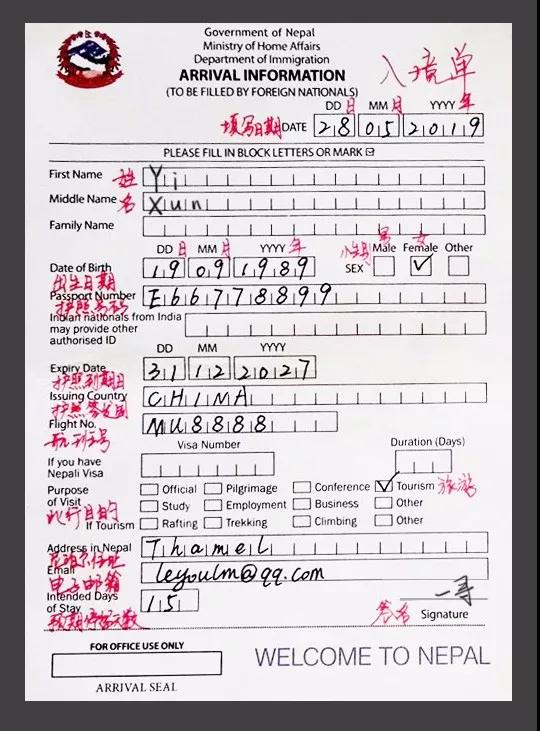 Government of Nepal
Ministry of Home Affairs
Department of Immigration
ARRIVAL INFORMATION
入境单
(TO BE FILLED BY FOREIGN NATIONALS)
DD 日 MM 月 YYYY 年
填写日期 DATE 28 05 2019
PLEASE FILL IN BLOCK LETTERS OR MARK ☑
First Name 姓 Yi
Middle Name 名 Xun
Family Name
DD 日 MM 月 YYYY 年 性别 男 Male 女 Female Other
Date of Birth 19 09 1989 SEX ✓
出生日期
Passport Number E66778899
护照号码
Indian nationals from India
may provide other
authorised ID
DD MM YYYY
Expiry Date 31 12 2027
护照到期日
Issuing Country CHIMA
护照签发国
Flight No. MU8888
航班号
Visa Number Duration (Days)
If you have
Nepali Visa
Purpose Official Pilgrimage Conference ✓ Tourism 旅游
of Visit Study Employment Business Other
此行目的
If Tourism Rafting Trekking Climbing Other
Address in Nepal Thamel
尼泊尔住址
Email leyoulm@qq.com
电子邮箱
Intended Days 15
of Stay
预期停留天数
一寻
签名 Signature
FOR OFFICE USE ONLY
WELCOME TO NEPAL
ARRIVAL SEAL